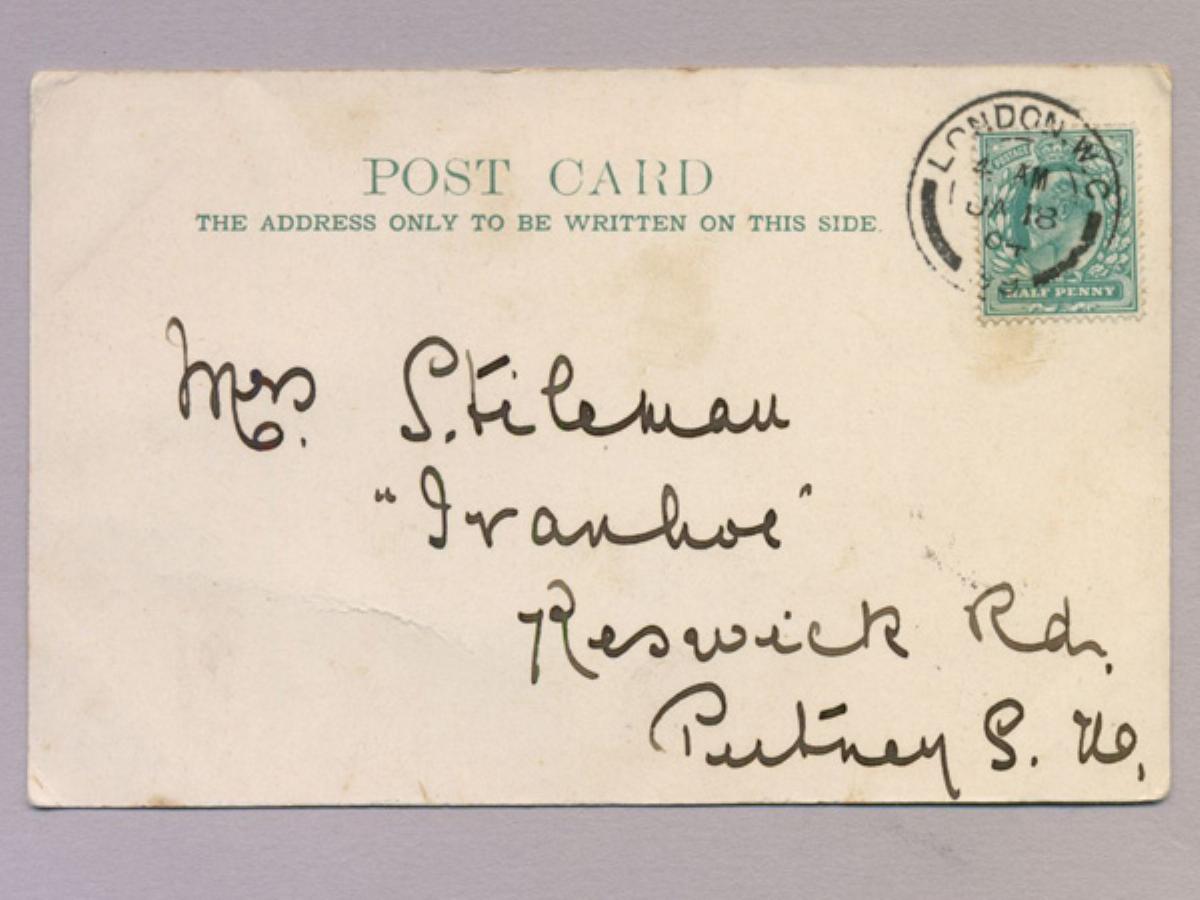 POST CARD
THE ADDRESS ONLY TO BE WRITTEN ON THIS SIDE.
LONDON. W.C
4 AM
JA 18
POSTAGE
HALF PENNY
Mrs. Stileman
"Ivanhoe"
Keswick Rd.
Putney S. W.